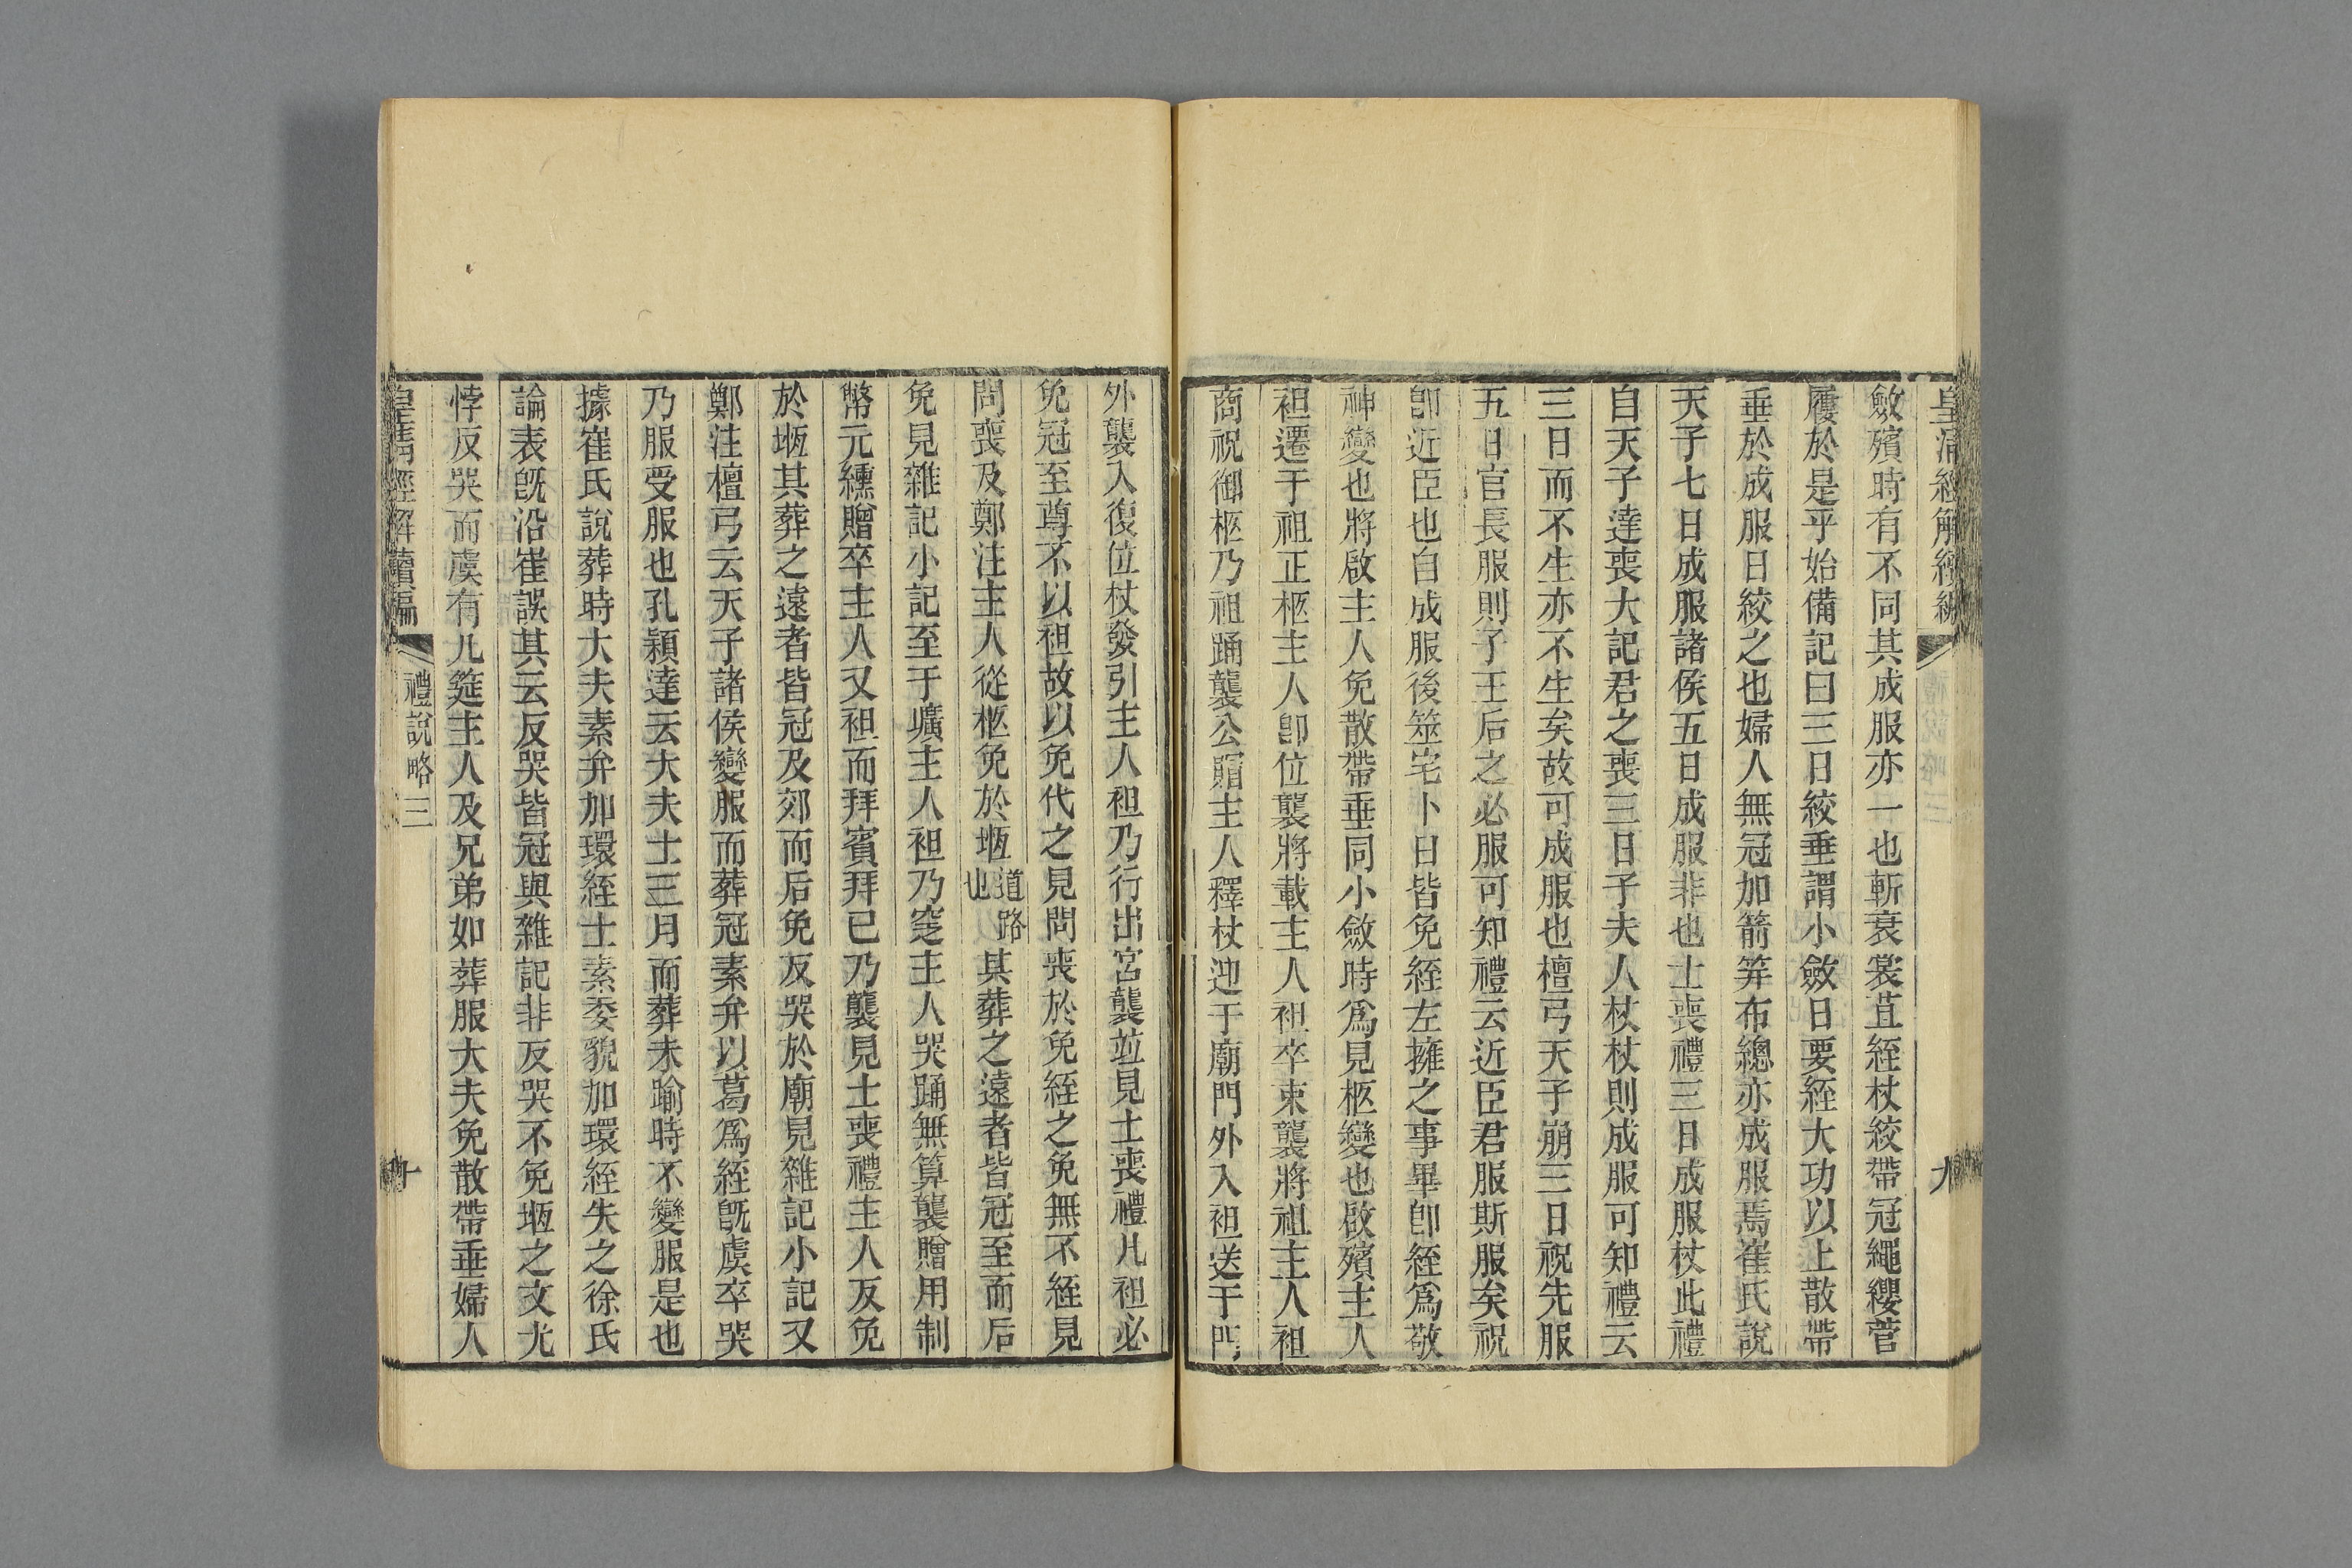 皇清經解續編
九
斂殯時有不同其成服亦一也斬衰裳苴絰杖絞帶冠繩纓菅
屨於是乎始備記曰三日絞垂謂小斂日要絰大功以上散帶
垂於成服日絞之也婦人無冠加箭筓布總亦成服焉崔氏說
天子七日成服諸侯五日成服非也士喪禮三日成服杖此禮
自天子達喪大記君之喪三日子夫人杖杖則成服可知禮云
三日而不生亦不生矣故可成服也檀弓天子崩三日祝先服
五日官長服則子王后之必服可知禮云近臣君服斯服矣祝
卽近臣也自成服後筮宅卜日皆免絰左擁之事畢卽絰爲敬
神變也將啟主人免散帶垂同小斂時爲見柩變也啟殯主人
袒遷于祖正柩主人卽位襲將載主人袒卒束襲將祖主人袒
商祝御柩乃祖踊襲公賵主人釋杖迎于廟門外入袒送于門
外襲入復位杖發引主人袒乃行出宮襲並見士喪禮凡袒必
免冠至尊不以袒故以免代之見問喪於免絰之免無不絰見
問喪及鄭注主人從柩免於堩道路也其葬之遠者皆冠至而后
免見雜記小記至于壙主人袒乃窆主人哭踊無算襲贈用制
幣元纁贈卒主人又袒而拜賓拜已乃襲見士喪禮主人反免
於堩其葬之遠者皆冠及郊而后免反哭於廟見雜記小記又
鄭注檀弓云天子諸侯變服而葬冠素弁以葛爲絰旣虞卒哭
乃服受服也孔穎達云大夫士三月而葬未踰時不變服是也
據崔氏說葬時大夫素弁加環絰士素委貌加環絰失之徐氏
論表旣沿崔誤其云反哭皆冠與雜記非反哭不免堩之文尤
悖反哭而虞有几筵主人及兄弟如葬服大夫免散帶垂婦人
皇淸經解續編
禮說略三
十